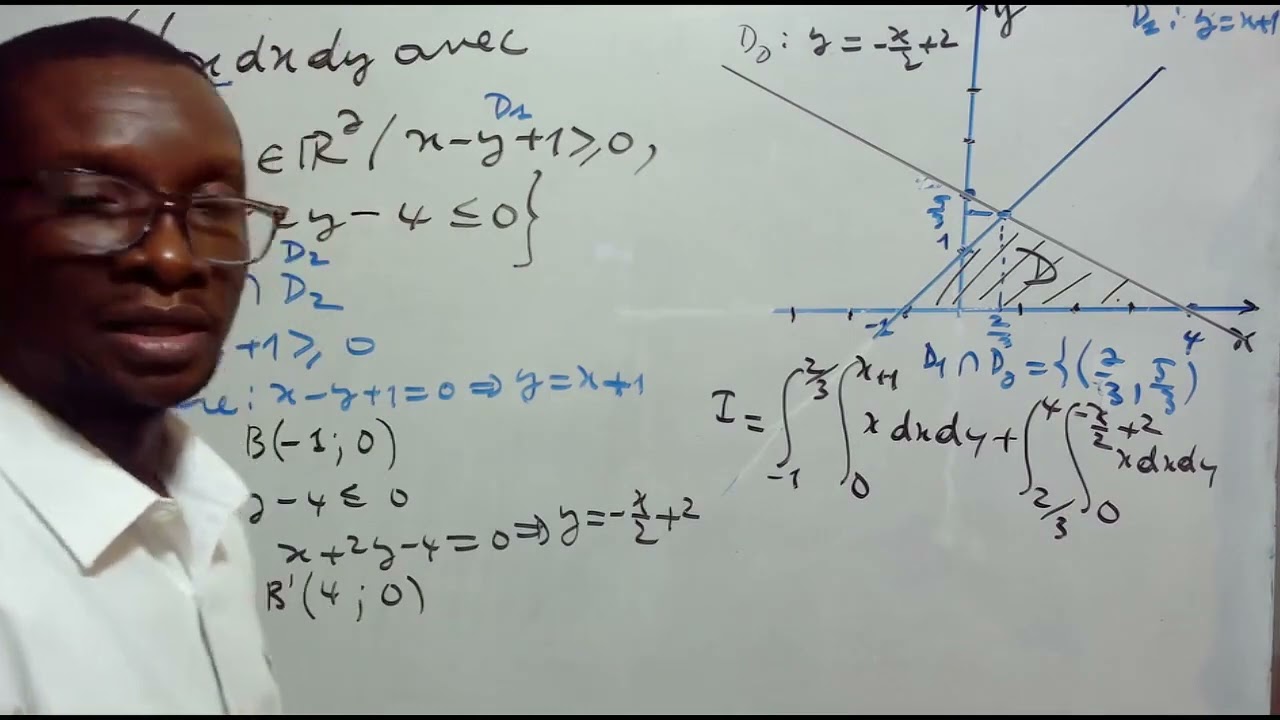 ∬ x dxdy avec
∈ ℝ² / x-y+1 ≥ 0,
D1
2y - 4 ≤ 0}
D2
∩ D2
+1 ≥ 0
: x-y+1=0 ⇒ y=x+1
B(-1; 0)
y - 4 ≤ 0
x+2y-4=0 ⇒ y=-x/2+2
B'(4; 0)
D2 : y = -x/2+2
y
D1 : y=x+1
5/3
1
D
-1
2/3
4
x
D1 ∩ D2 = {(2/3, 5/3)
I = ∫_{-1}^{2/3} ∫_0^{x+1} x dxdy + ∫_{2/3}^4 ∫_0^{-x/2+2} x dxdy